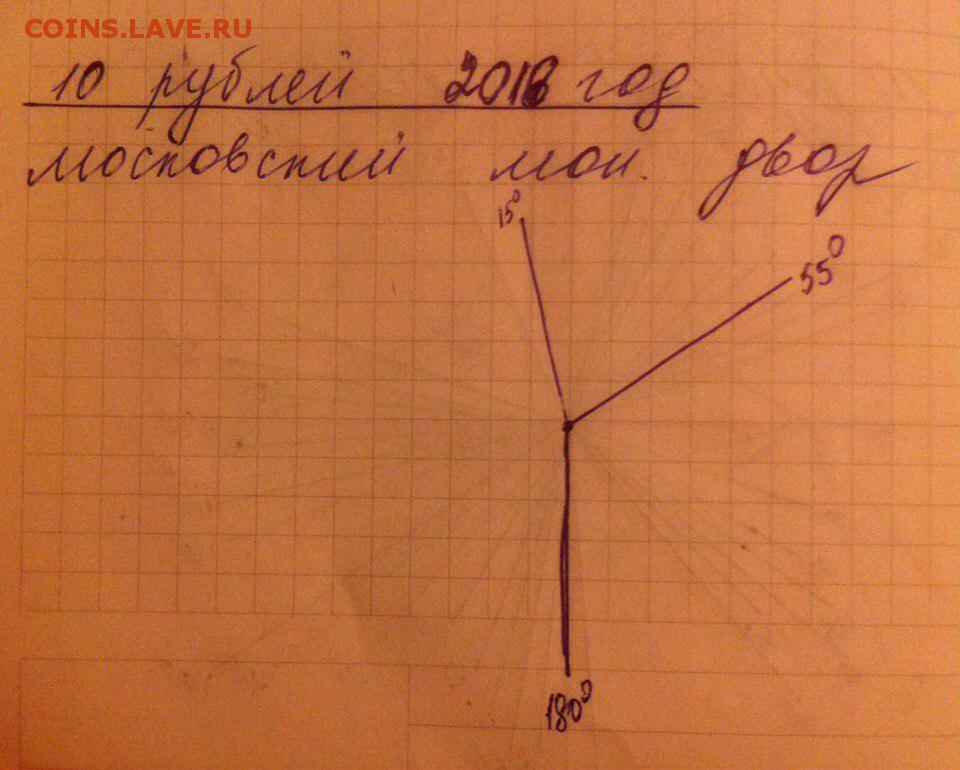 COINS.LAVE.RU
10 рублей 2016 год
московский мон. двор
15°
55°
180°